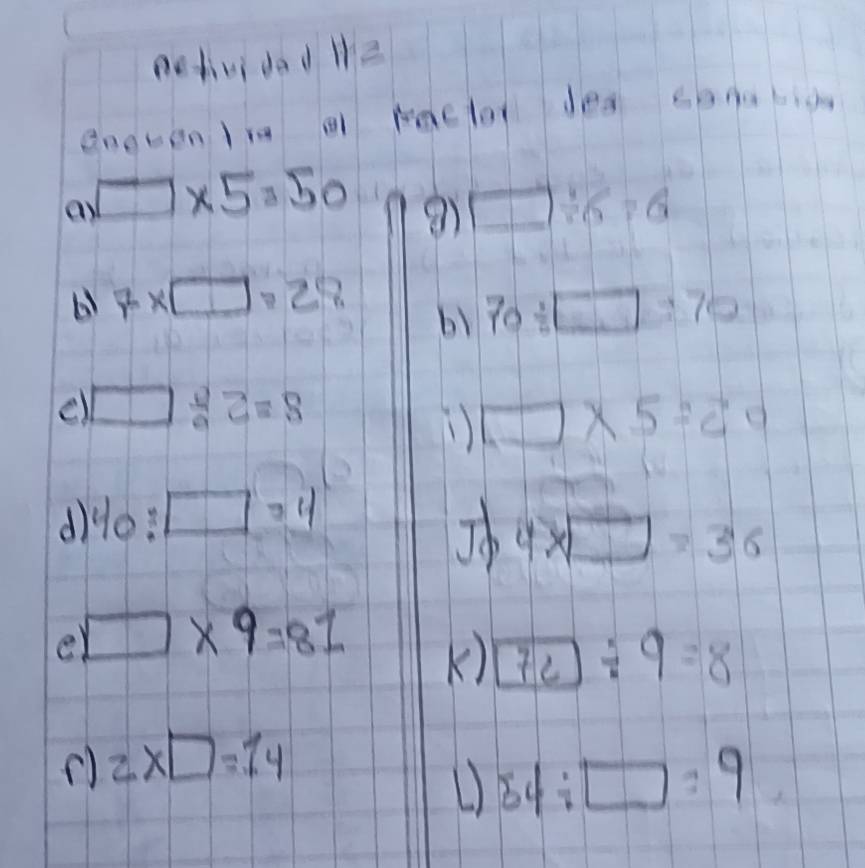 actividad #2
encuentra el factor desconocido
a) □ × 5 = 50
b) 7 × □ = 28
c) □ ÷ 2 = 8
d) 40 ÷ □ = 4
e) □ × 9 = 81
f) 2 × □ = 14
g) □ ÷ 6 = 6
h) 70 ÷ □ = 70
i) □ × 5 = 20
J) 4 × □ = 36
K) 72 ÷ 9 = 8
L) 54 ÷ □ = 9